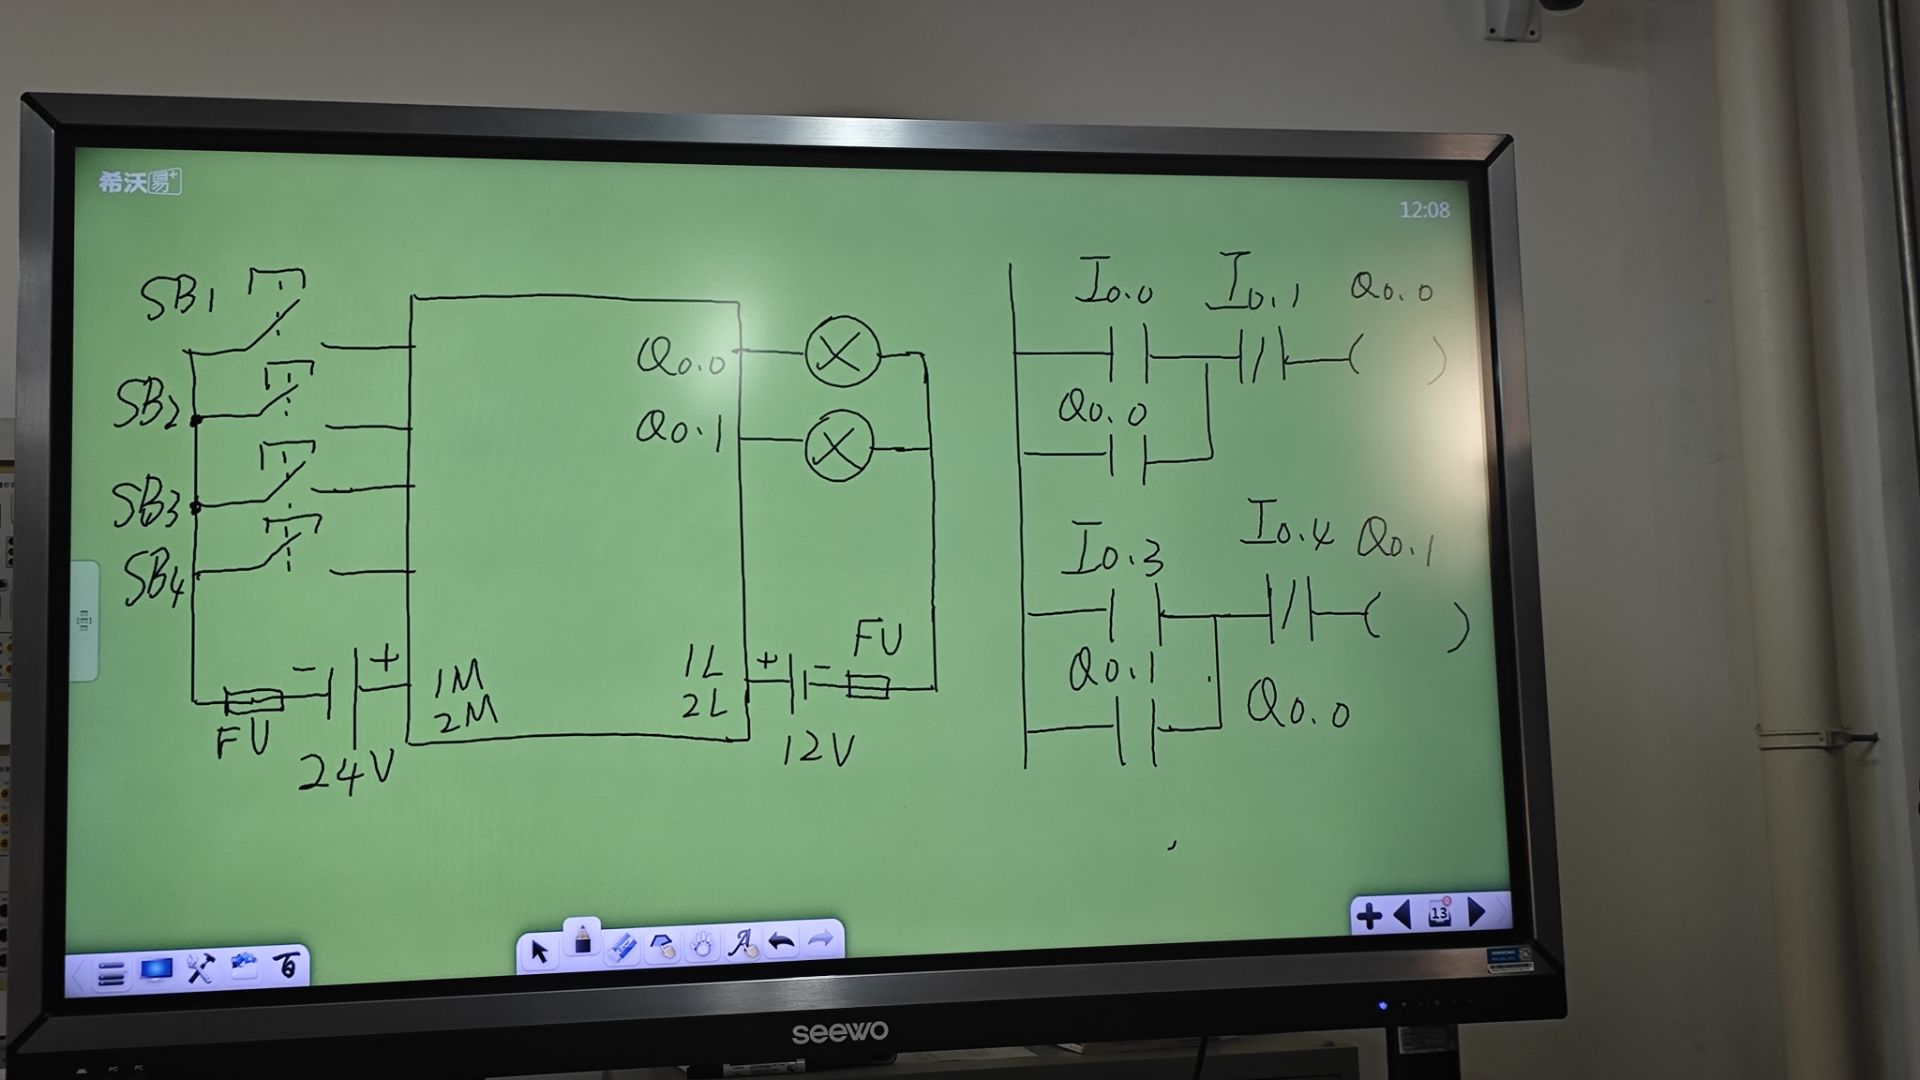 希沃易+
12:08
SB1
SB2
SB3
SB4
FU
- +
24V
1M
2M
Q0.0
Q0.1
1L
2L
+ -
FU
12V
I0.0 I0.1 Q0.0
Q0.0
I0.3 I0.4 Q0.1
Q0.1 Q0.0
13
seewo